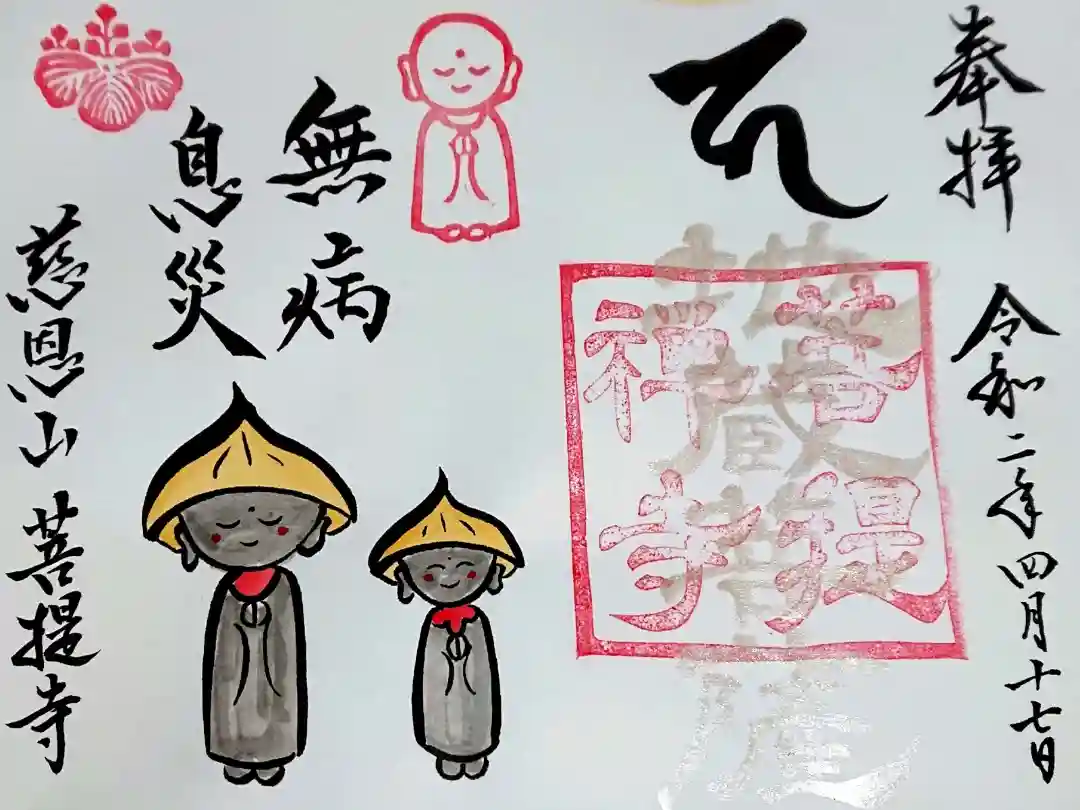 奉拝
令和二年四月十七日
ह
地蔵菩薩
菩提
禅寺
無病
息災
慈恩山 菩提寺